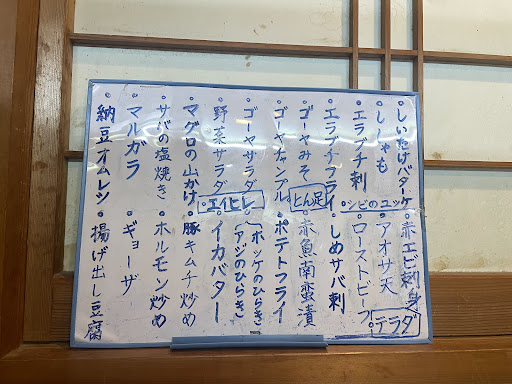 ・しいたけバター
・ししゃも
・エラブチ刺
・エラブチフライ
・ゴーヤみそ
・ゴーヤチャンプル
・ゴーヤサラダ
・野菜サラダ
・マグロの山かけ
・サバの塩焼き
・マルガラ
・納豆オムレツ
・シビのユッケ
とん足
・エイヒレ
・赤エビ刺身
・アオサ天
・ローストビーフ
・テラダ
・しめサバ刺
・赤魚南蛮漬
・ポテトフライ
・(ホッケのひらき
アジのひらき)
・イカバター
・豚キムチ炒め
・ホルモン炒め
・ギョーザ
・揚げ出し豆腐